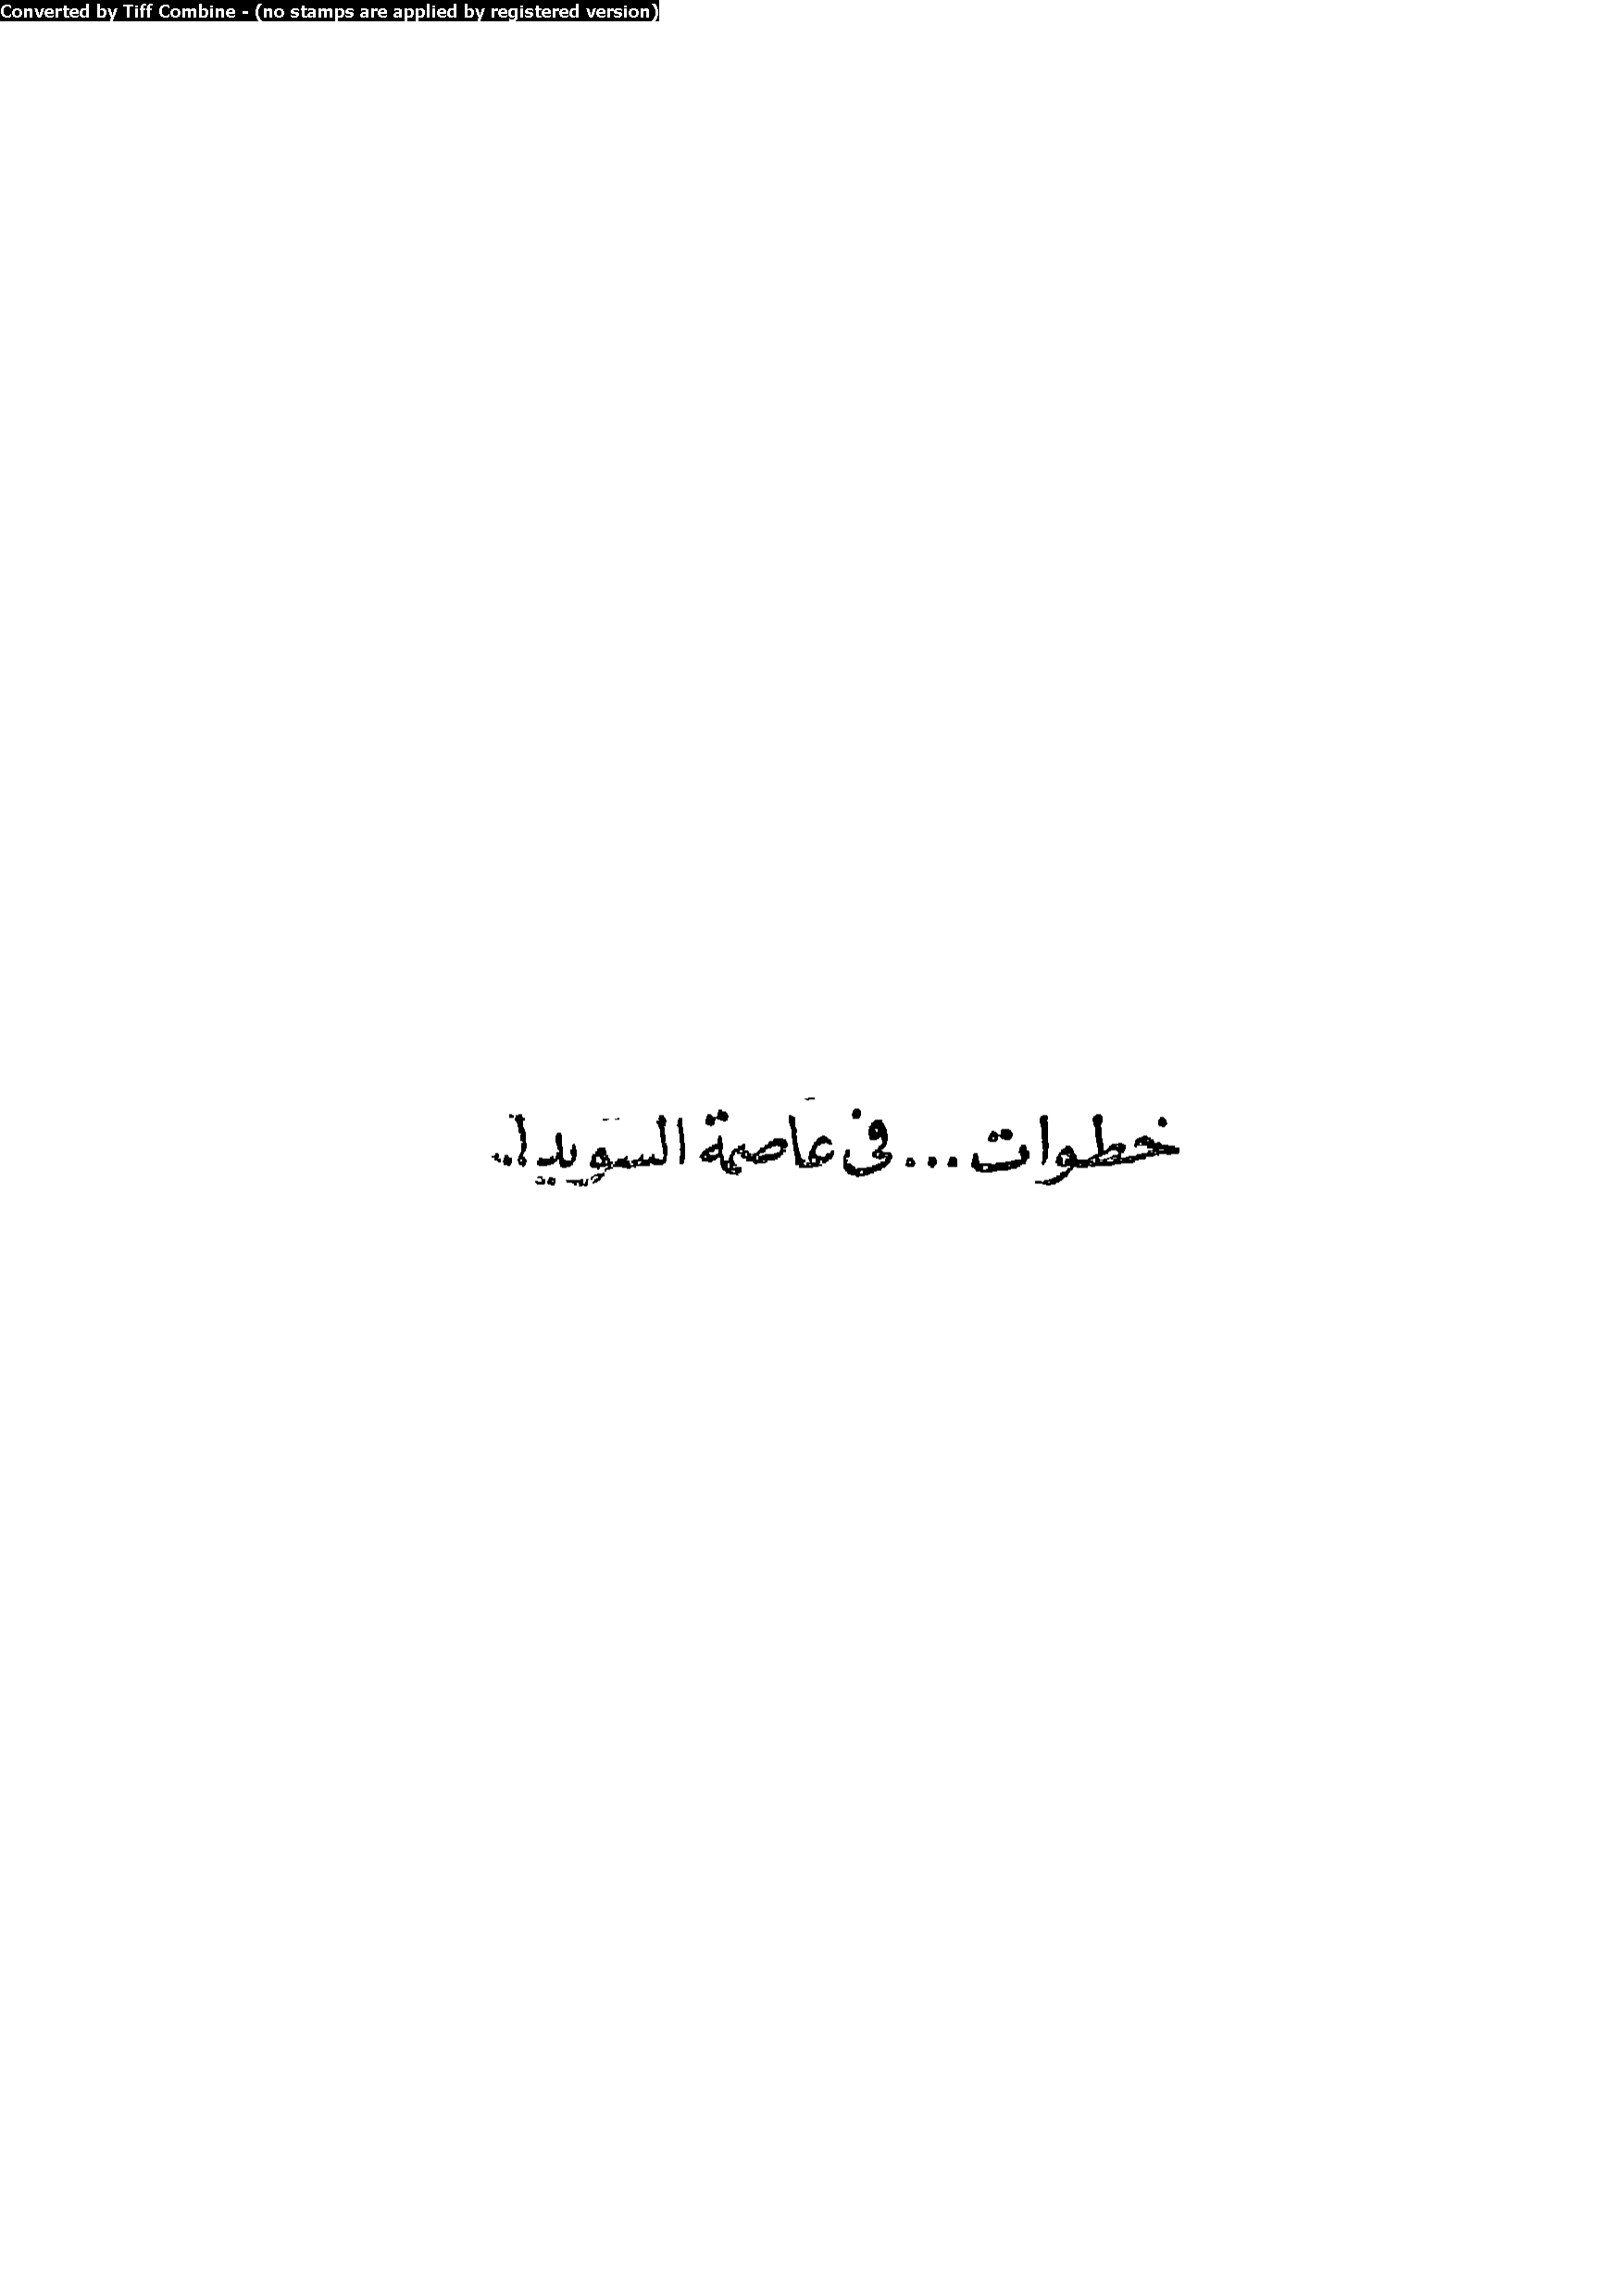 Converted by Tiff Combine - (no stamps are applied by registered version)
خطوات ... فى عاصمة السويد !..